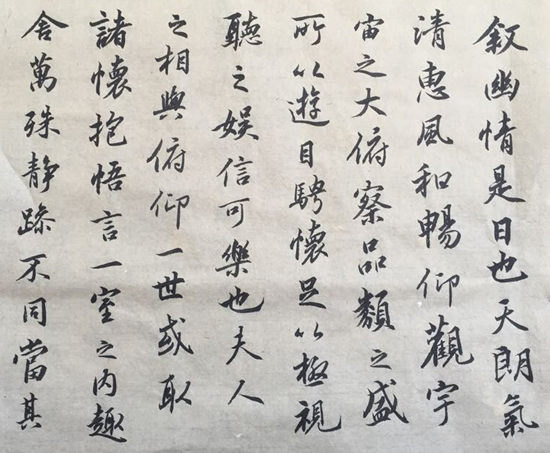 叙幽情是日也天朗氣
清惠風和暢仰觀宇
宙之大俯察品類之盛
所以遊目騁懷足以極視
聽之娛信可樂也夫人
之相與俯仰一世或取
諸懷抱悟言一室之內趣
舍萬殊靜躁不同當其